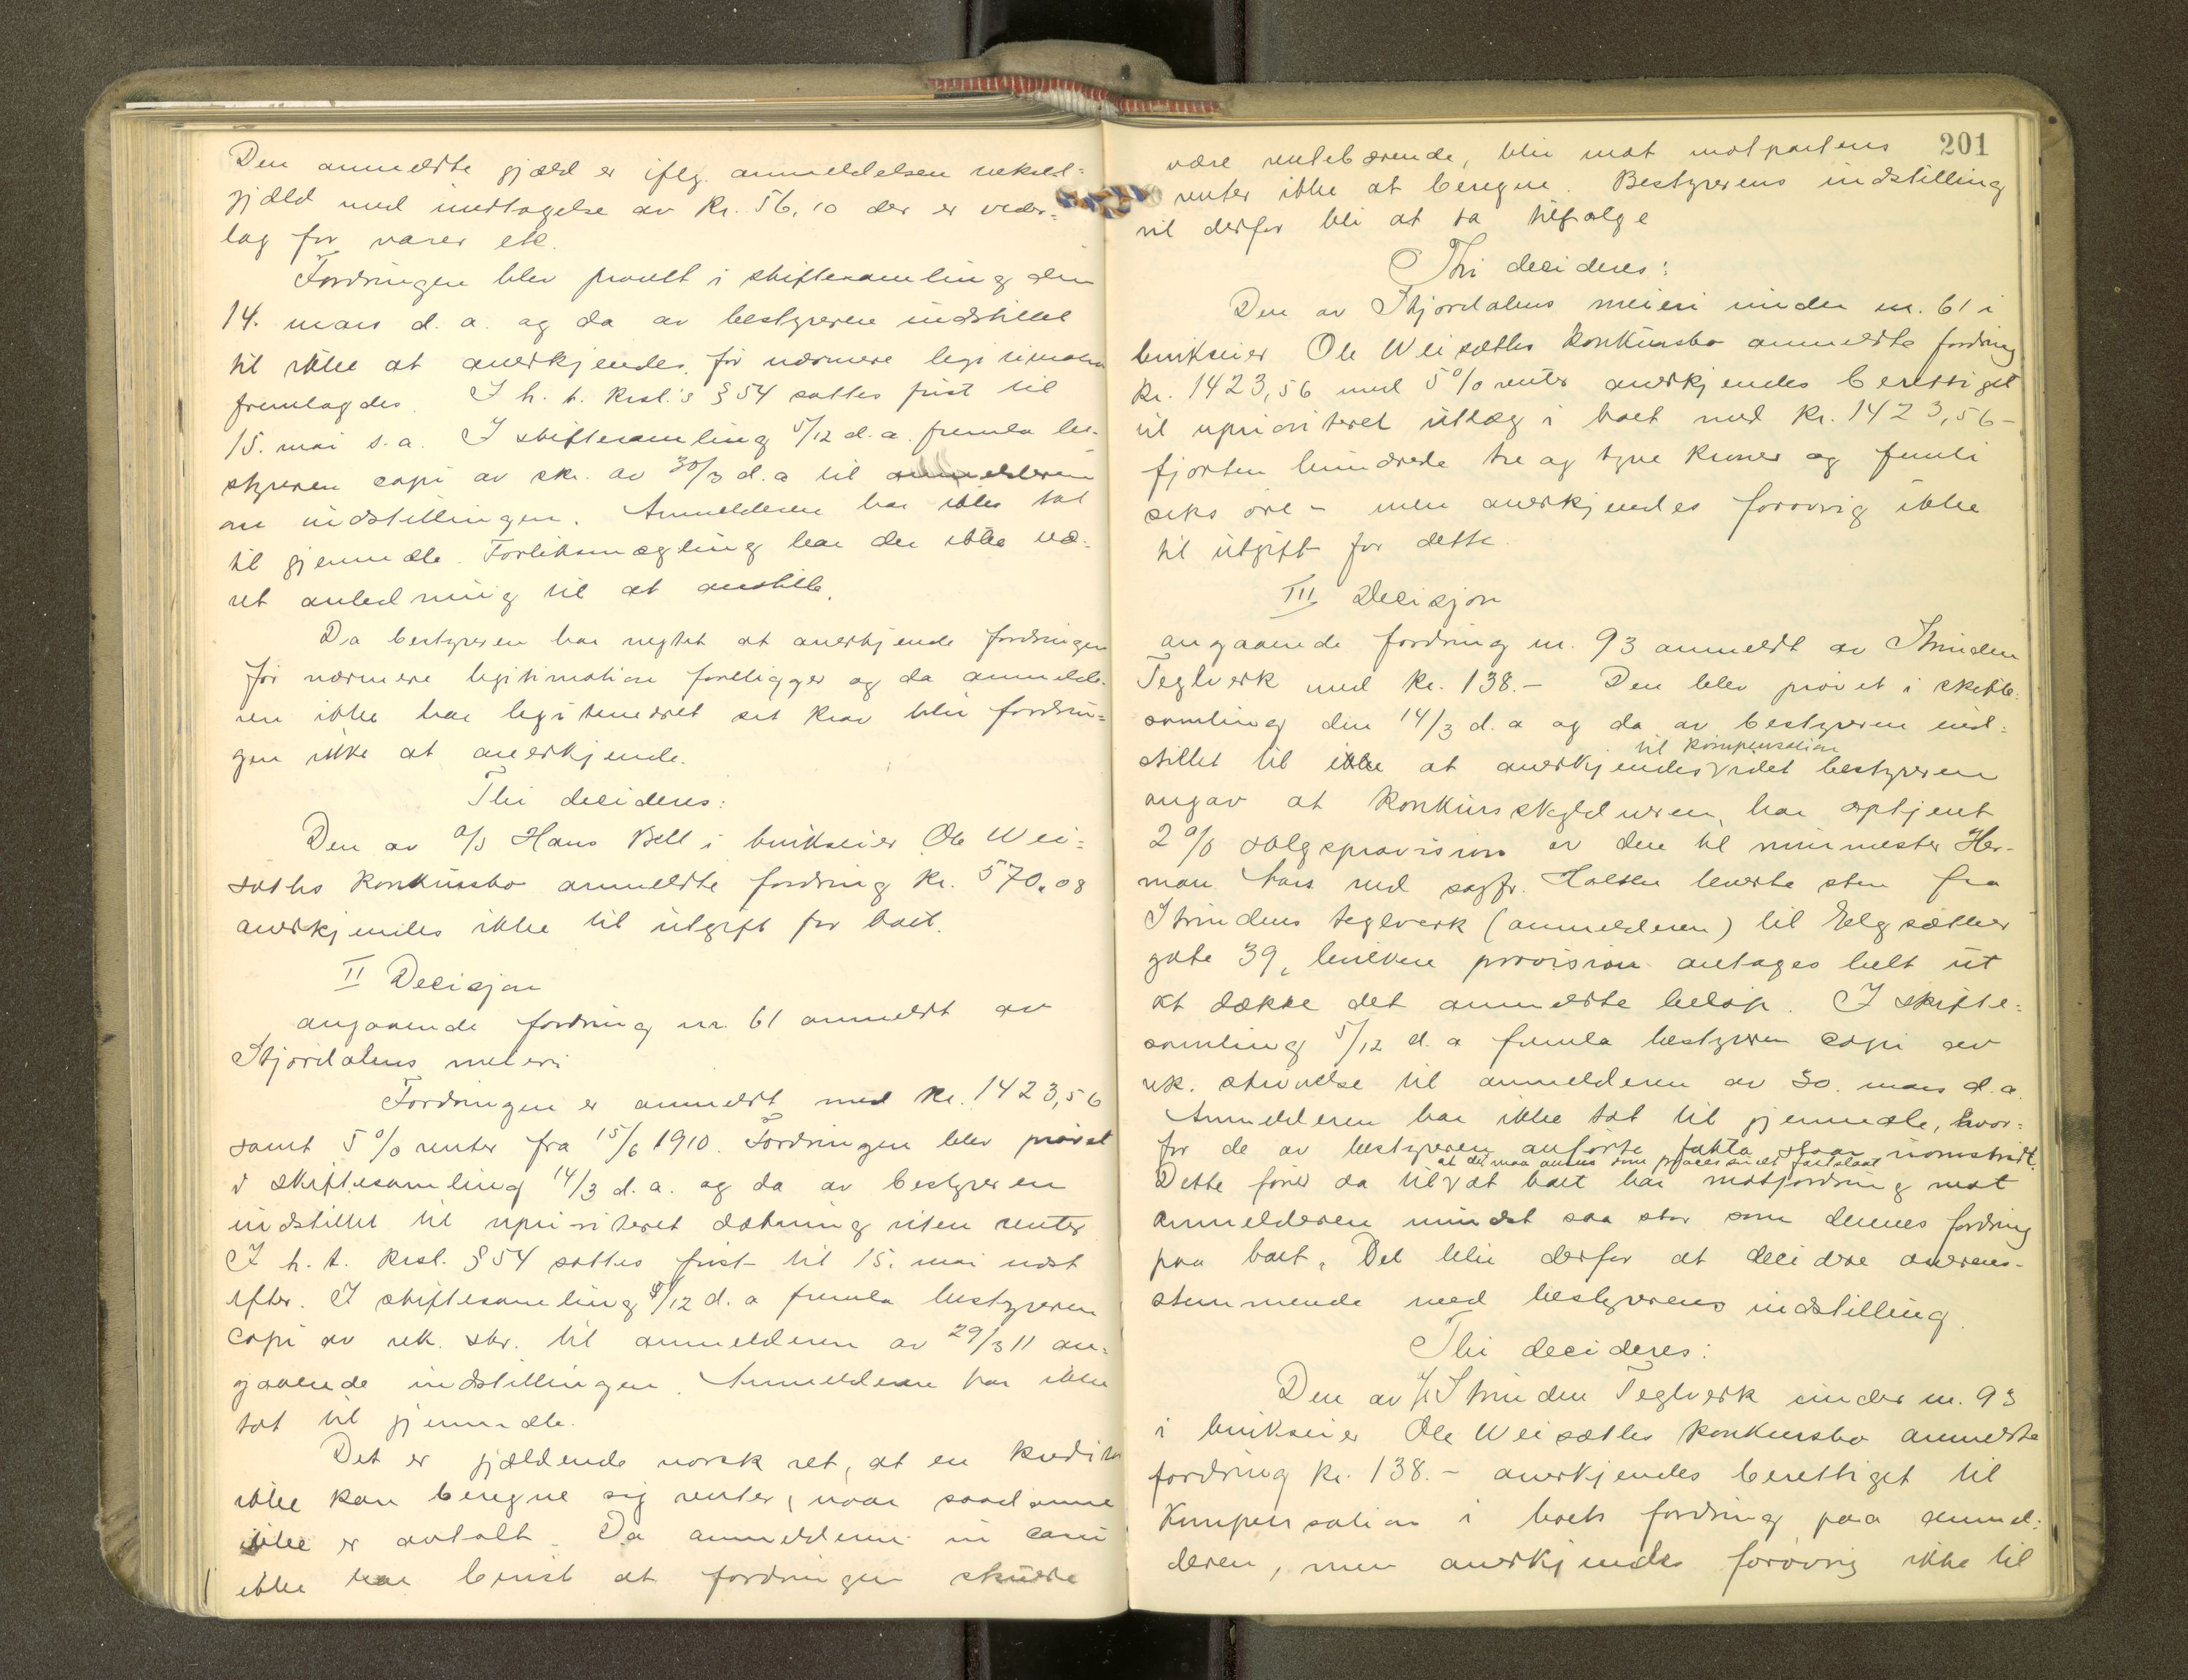 Den anmeldte gjæld er iflg. anmeldelsen veksel-
gjæld med undtagelse av kr. 56,10 der er veder-
lag for varer etc.
Fordringen blev prøvet i skiftesamling den
14. mars d. a. og da av bestyreren indstillet
til ikke at anerkjendes, før nærmere legitimation
fremlagdes. I h. t. Krsl.'s § 54 sattes frist til
15. mai s. a. I skiftesamling 5/12 d. a. fremla be-
styreren copi av skr. av 30/3 d. a til anmelderen
om indstillingen. Anmelderen har ikke tat
til gjenmæle. Forliksmægling har der ikke væ-
ret anledning til at anstille.
Da bestyreren har negtet at anerkjende fordringen
før nærmere legitimation foreligger og da anmelde-
ren ikke har legitimeret sit krav blir fordrin-
gen ikke at anerkjende.
Thi decideres:
Den av a/s Hans Bell i brukseier Ole Wei-
sæths konkursbo anmeldte fordring kr. 570,08
anerkjendes ikke til utgift for boet.
II Decisjon
angaaende fordring nr. 61 anmeldt av
Stjørdalens meieri
Fordringen er anmeldt med kr. 1423,56
samt 5 % renter fra 15/6 1910. Fordringen blev prøvet
i skiftesamling 14/3 d. a. og da av bestyreren
indstillet til uprioriteret dækning uten renter
I h. t. Krsl. § 54 sattes frist til 15. mai næst
efter. I skiftesamling 5/12 d. a fremla bestyreren
copi av rek. skr. til anmelderen av 29/3 11 an-
gaaende indstillingen. Anmelderen har ikke
tat til gjenmæle.
Det er gjældende norsk ret, at en kreditor
ikke kan beregne sig renter, naar saadanne
ikke er avtalt. Da anmelderen in casu
ikke har bevist at fordringen skulde
201
være rentebærende, blir mot motpartens
renter ikke at beregne. Bestyrerens indstilling
vil derfor bli at ta tilfølge
Thi decideres:
Den av Stjørdalens meieri under nr. 61 i
brukseier Ole Weisæths konkursbo anmeldte fordring
kr. 1423,56 med 5 % renter anerkjendes berettiget
til uprioriteret utlæg i boet med kr. 1423,56 -
fjorten hundrede tre og tyve kroner og femti
seks øre - men anerkjendes forøvrig ikke
til utgift for dette.
III Decisjon
angaaende fordring nr. 93 anmeldt av Strinden
Teglverk med kr. 138.- Den blev prøvet i skifte-
samling den 14/3 d. a og da av bestyreren ind-
til kompensation
stillet til ikke at anerkjendes idet bestyreren
angav at konkursskyldneren har optjent
2 % salgsprovision av den til murmester Her-
man ved sagfr. leverte sten fra
Strindens teglverk (anmelderen) til Elgsæther
gate 39, hvilken provision antages helt ut
at dække det anmeldte beløp. I skifte-
samling 5/12 d. a fremla bestyreren copi av
rek. skrivelse til anmelderen av 30. mars d. a.
Anmelderen har ikke tat til gjenmæle, hvor-
for de av bestyreren anførte fakta staar uomstridt.
at det maa ansees som processuelt fastslaat
Dette fører da til at boet har motfordring mot
anmelderen mindst saa stor som dennes fordring
paa boet. Det blir derfor at decidere overens-
stemmende med bestyrerens indstilling.
Thi decideres:
Den av Strinden Teglverk under nr. 93
i brukseier Ole Weisæths konkursbo anmeldte
fordring kr. 138.- anerkjendes berettiget til
kompensation i boets fordring paa anmel-
deren, men anerkjendes forøvrig ikke til